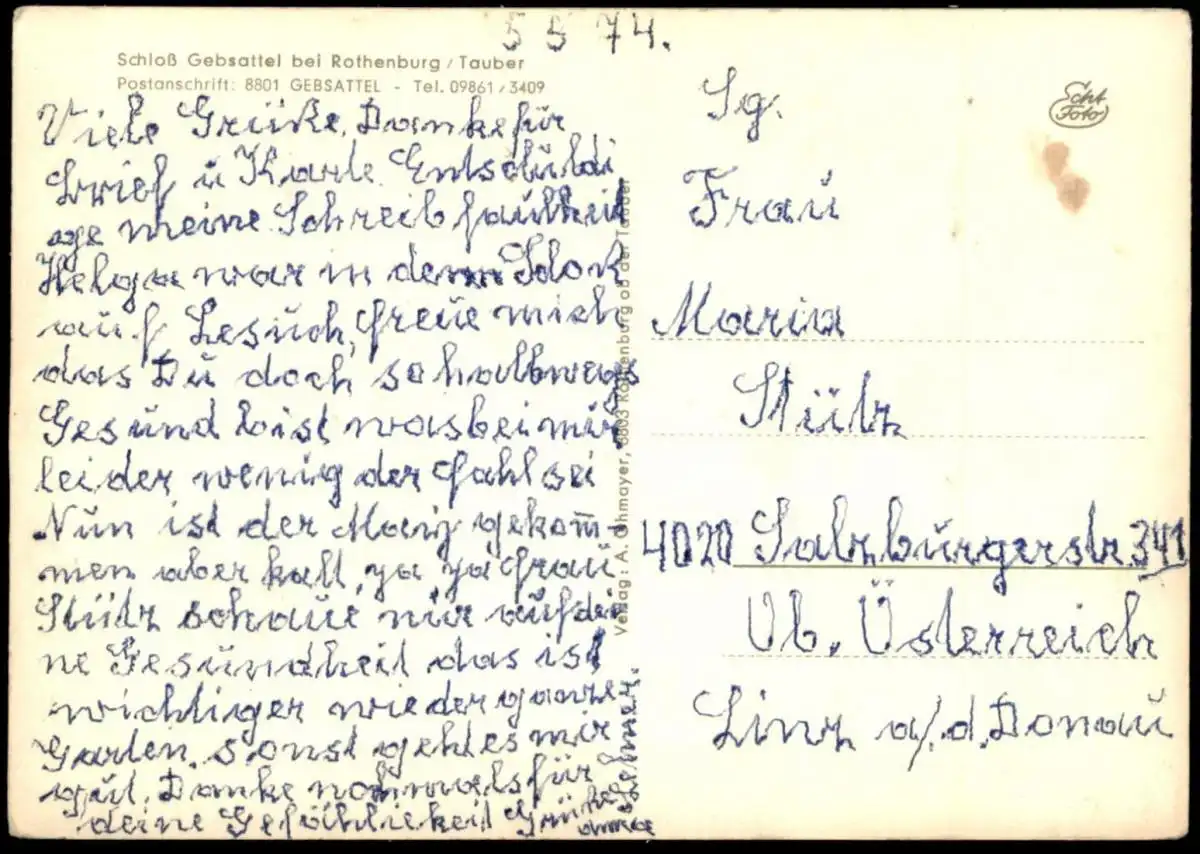 5 5 74.
Schloß Gebsattel bei Rothenburg / Tauber
Postanschrift: 8801 GEBSATTEL - Tel. 09861 / 3409
Viele Grüße, Danke für
Brief u Karte. Entschuldi
ge meine Schreibfaulheit
Helga war in dem Schloß
auf Besuch, freue mich
das Du doch so halbwegs
Gesund bist was bei mir
leider wenig der Fahl sei
Nun ist der May gekom̅-
men aber kalt, ya ya Frau
Stütz schaue nur auf dei
ne Gesundheit das ist
wichtiger wie der ganze
Garten. sonst geht es mir
gut. Danke nochmals für
deine Gefähliekeit Grüße
Verlag: A. Ohmayer, 8803 Rothenburg ob der Tauber
Echt Foto
Sg.
Frau
Maria
Stütz
4020 Salzburgerstr 341
Ob. Österreich
Linz a/.d. Donau